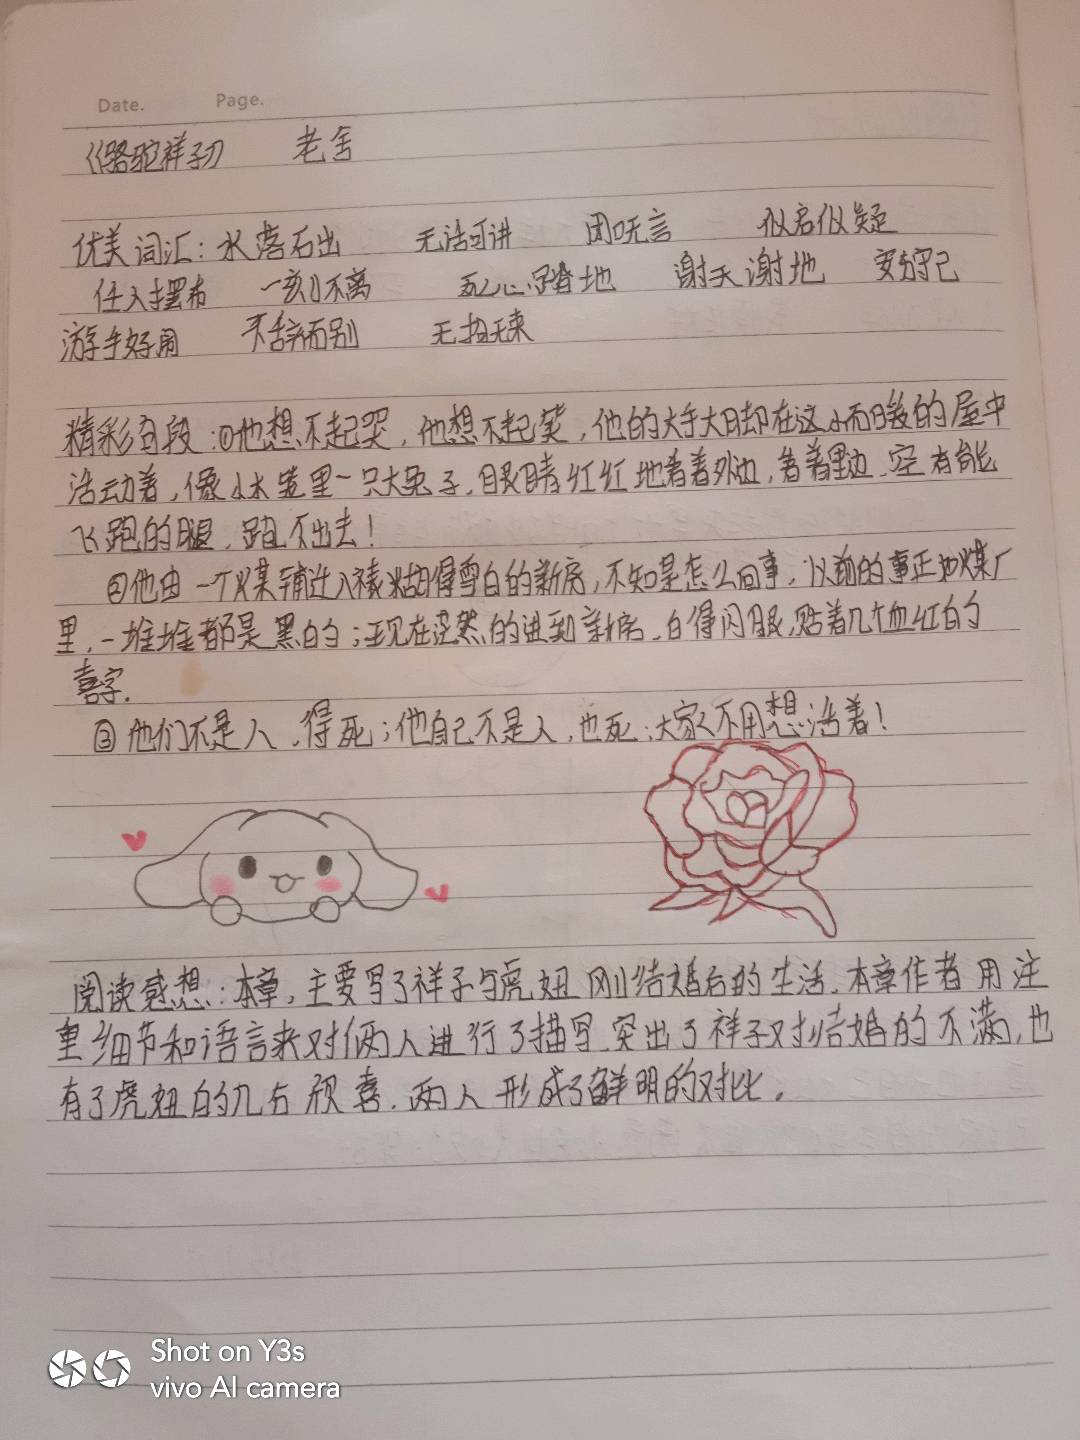 Date. Page.
《骆驼祥子》 老舍
优美词汇：水落石出 无话可讲 闭口无言 似启似疑
任人摆布 一刻不离 死心踏地 谢天谢地 安分守己
游手好闲 不辞而别 无拘无束
精彩句段：①他想不起哭，他想不起笑，他的大手大脚在这小而暖的屋中
活动着，像小木笼里一只大兔子，眼睛红红地看着外边，看着里边，空有能
飞跑的腿，跑不出去！
②他由一个煤铺迁入裱糊得雪白的新房，不知是怎么回事，以前的事正如煤厂
里，一堆堆都是黑的；现在茫然的进到新房，白得闪眼，贴着几个血红的
喜字．
③他们不是人，得死；他自己不是人，也死；大家不用想活着！
阅读感想：本章，主要写了祥子与虎妞刚结婚后的生活．本章作者用注
重细节和语言来对俩人进行了描写．突出了祥子对结婚的不满，也
有了虎妞的 欣喜．两人形成了鲜明的对比。
Shot on Y3s
vivo AI camera